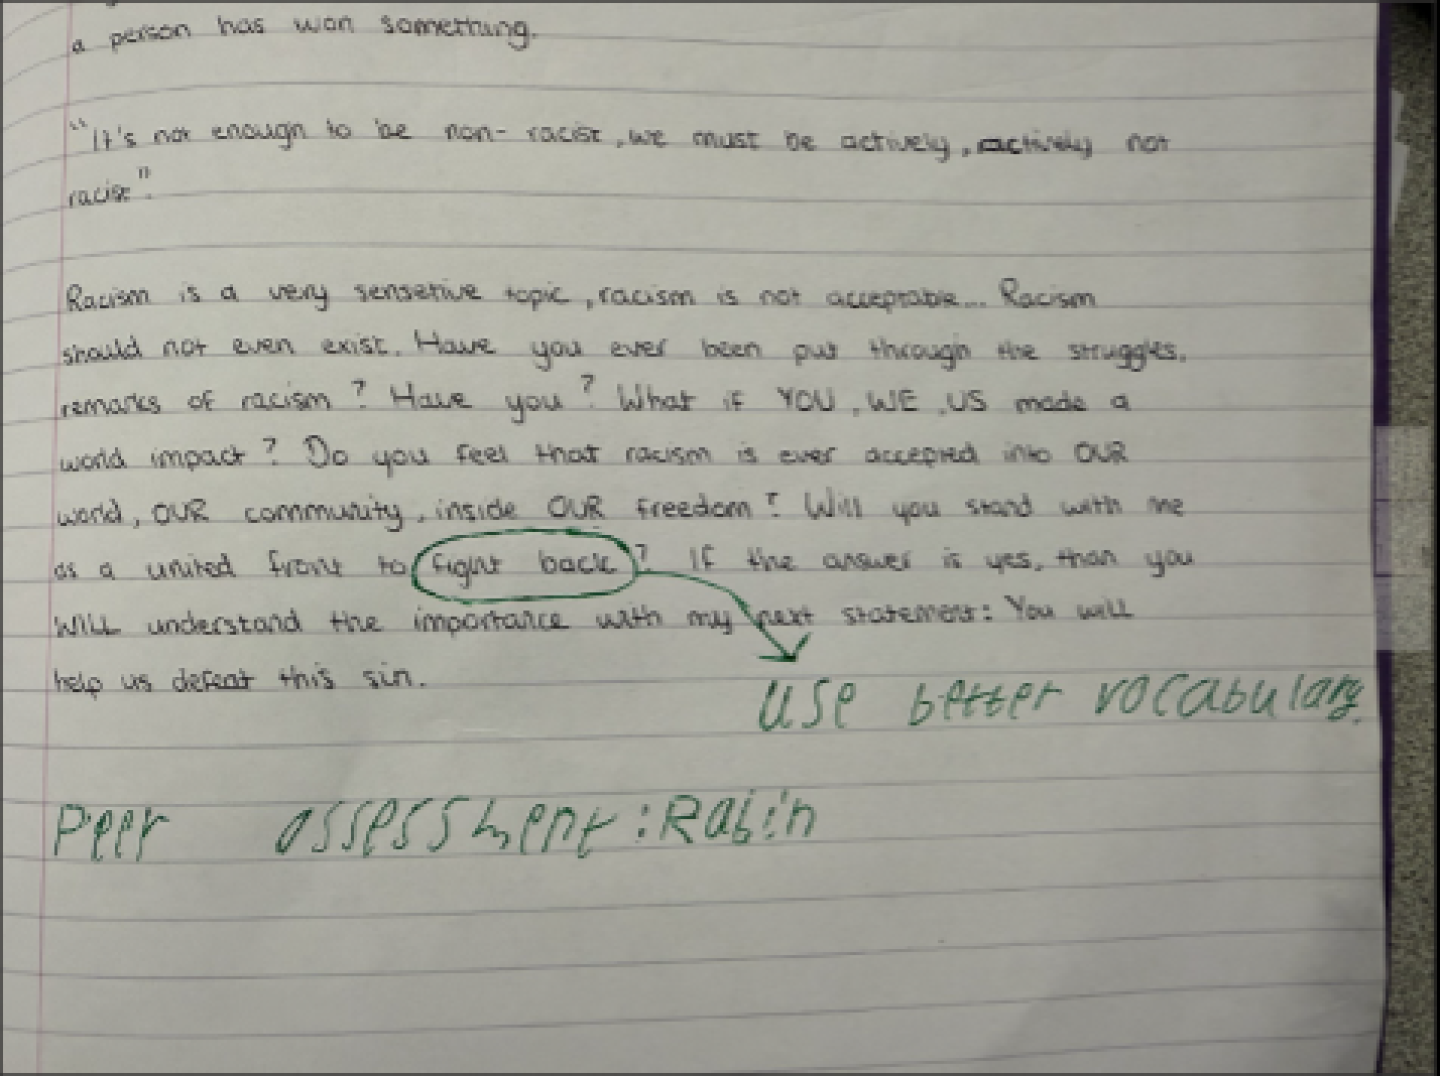 a person has won something.
"It's not enough to be non-racist, we must be actively, actively not
racist".
Racism is a very sensetive topic, racism is not acceptable... Racism
should not even exist. Have you ever been put through the struggles,
remarks of racism? Have you? What if YOU, WE, US made a
world impact? Do you feel that racism is ever accepted into OUR
world, OUR community, inside OUR freedom? Will you stand with me
as a united front to fight back? If the answer is yes, than you
WILL understand the importance with my next statement: You will
help us defeat this sin.
use better vocabulary.
Peer assessment: Rabin